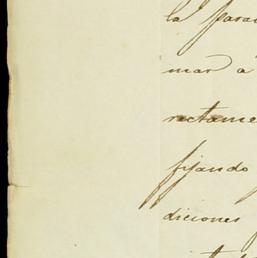 la para
mar a
rectame
fijando
diciones